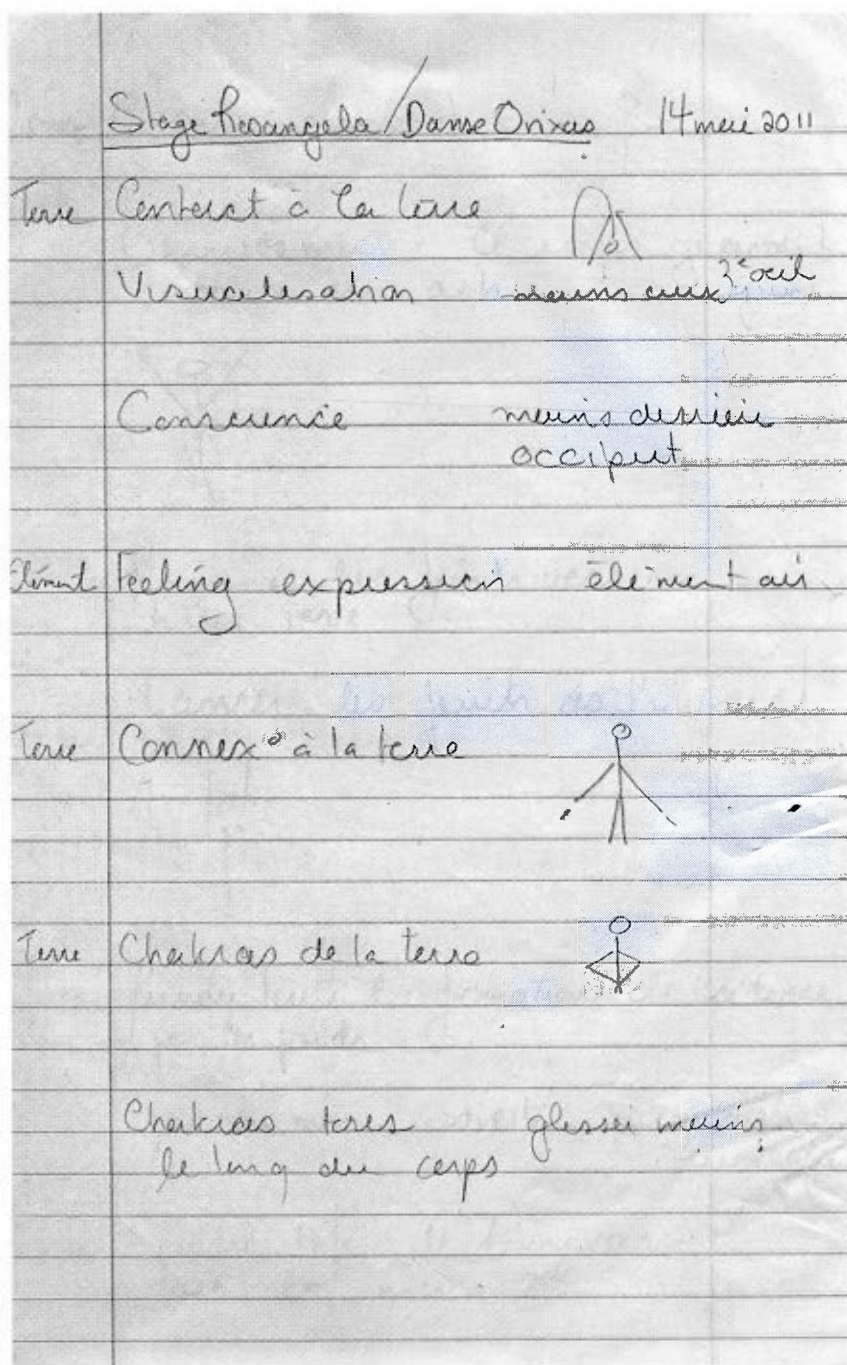 Stage Rosangela / Danse Orixas 14 mai 2011
Terre Contact à la terre
Visualisation mains aux 3e oeil
Conscience mains derrière
occiput
Elément Feeling expression élément air
Terre Connex° à la terre
Terre Chakras de la terre
Chakras tores glisser mains
le long du corps